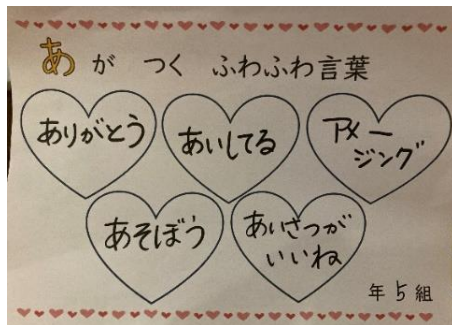 あ が つく ふわふわ言葉
ありがとう
あいしてる
アメー
ジング
あそぼう
あいさつが
いいね
年 5 組